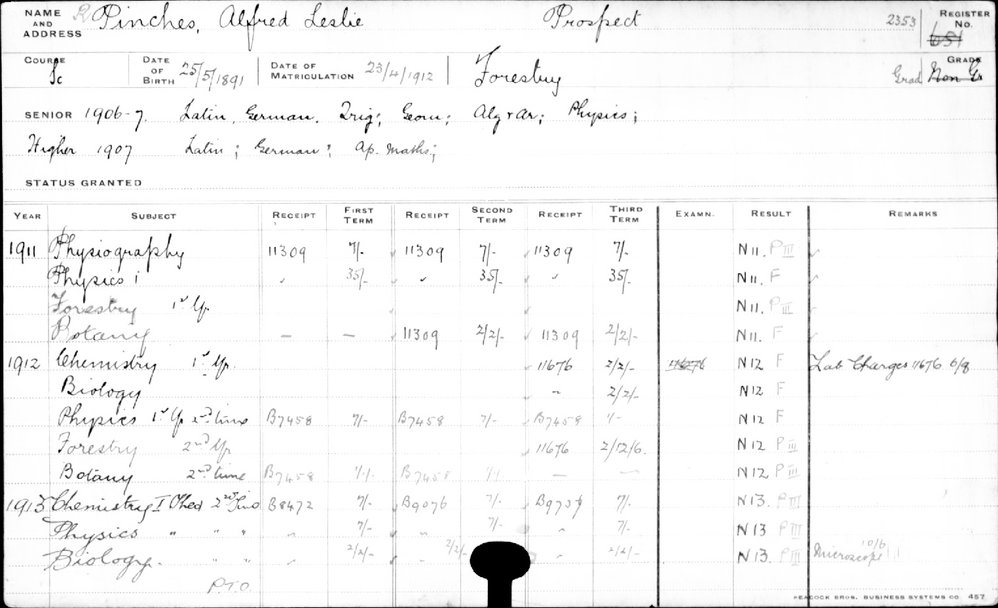 NAME AND ADDRESS Pinches, Alfred Leslie Prospect 2353 REGISTER No. 651
COURSE Sc DATE OF BIRTH 25/5/1891 DATE OF MATRICULATION 23/4/1912 Forestry Grad GRADE Non Gr
SENIOR 1906-7. Latin, German, Trig; Geom; Alg & Ar; Physics;
Higher 1907 Latin; German; Ap. Maths;
STATUS GRANTED
YEAR SUBJECT RECEIPT FIRST TERM RECEIPT SECOND TERM RECEIPT THIRD TERM EXAMN. RESULT REMARKS
1911 Physiography 11309 7/- 11309 7/- 11309 7/- N11. P III
Physics i " 35/- " 35/- " 35/- N11. F
Forestry 1st Yr. N11. P III
Botany — — 11309 2/2/- 11309 2/2/- N11. F
1912 Chemistry 1st Yr. 11676 2/2/- 11676 N12 F Lab Charges 11676 6/8
Biology " 2/2/- N12 F
Physics 1st Yr 2nd time B7458 7/- B7458 7/- B7458 7/- N12 F
Forestry 2nd Yr 11676 2/12/6. N12 P III
Botany 2nd time B7458 1/1- B7458 1/1 — — N12 P III
1913 Chemistry I 2nd Time B8472 7/- B9076 7/- 7/- N13. P III
Physics " " " " 7/- 7/- " 7/- N13 P III
Biology. " " " 2/2/- 2/2/- " 2/2/- N13. P III Microscope 10/6
P.T.O
PEACOCK BROS. BUSINESS SYSTEMS CO 457